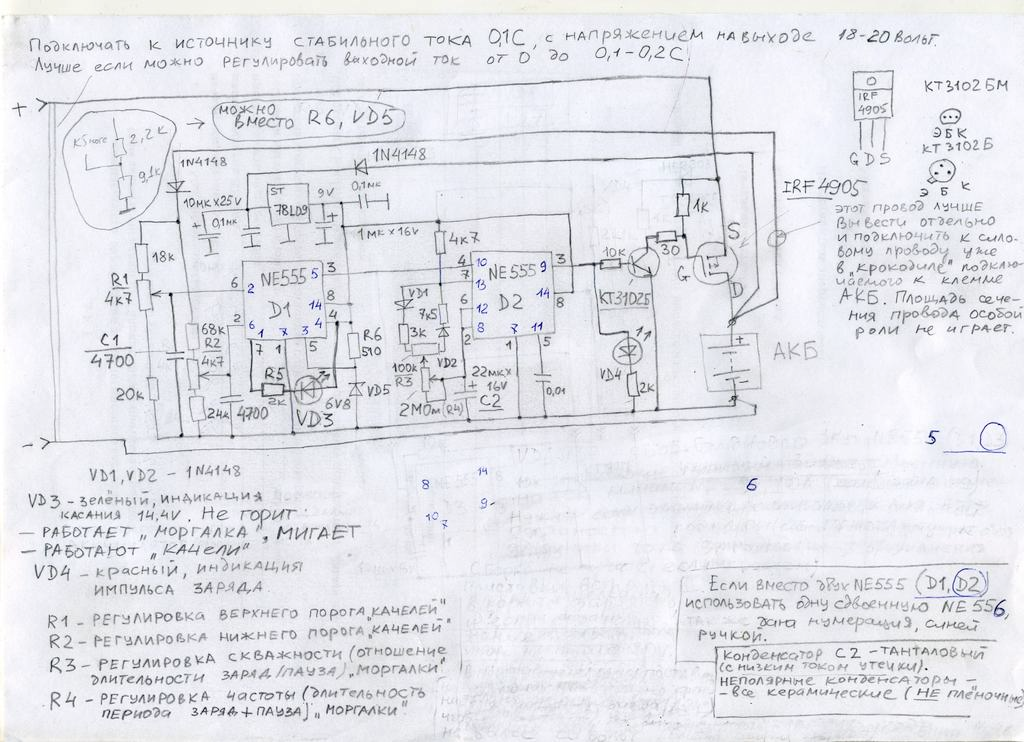 Подключать к источнику стабильного тока 0,1С, с напряжением на выходе 18-20 вольт.
Лучше если можно регулировать выходной ток от 0 до 0,1-0,2С
+
2,2к
9,1к
можно
вместо R6, VD5
1N4148
1N4148
10мк×25V
0,1мк
ST
78L09
9V
0,1мк
1мк×16V
18к
R1
4к7
C1
4700
20к
68к
R2
4к7
24к
4700
NE555
D1
6
2
2
6
7
1
1
7
3
5
5
14
3
8
4
4
R5
2к
VD3
R6
510
6V8
VD5
4к7
VD1
7к5
3к
VD2
100к
R3
2М0м (R4)
22мк×
16V
C2
NE555
D2
4
7
6
2
10
13
12
8
9
14
3
8
7
11
1
5
0,01
10к
КТ3102Б
VD4
2к
30
1к
G
S
D
+
-
АКБ
IRF4905
IRF
4905
GDS
КТ3102БМ
ЭБК
КТ3102Б
Э Б К
этот провод лучше
вывести отдельно
и подключить к сило-
вому проводу уже
в „крокодиле" подклю-
чаемого к клемме
АКБ. Площадь сече-
ния провода особой
роли не играет.
-
VD1, VD2 - 1N4148
VD3 - зелёный, индикация
касания 14,4V. Не горит
- работает „моргалка", мигает
- работают „качели"
VD4 - красный, индикация
импульса заряда.
R1 - регулировка верхнего порога „качелей"
R2 - регулировка нижнего порога „качелей"
R3 - регулировка скважности (отношение
длительности заряд/пауза) „моргалки"
R4 - регулировка частоты (длительность
периода заряд+пауза) „моргалки"
8
14
9
10
7
6
5
Если вместо двух NE555 (D1, D2)
использовать одну сдвоенную NE556,
также дана нумерация, синей
ручкой.
Конденсатор C2 - танталовый
(с низким током утечки).
Неполярные конденсаторы -
- все керамические (не плёночные)